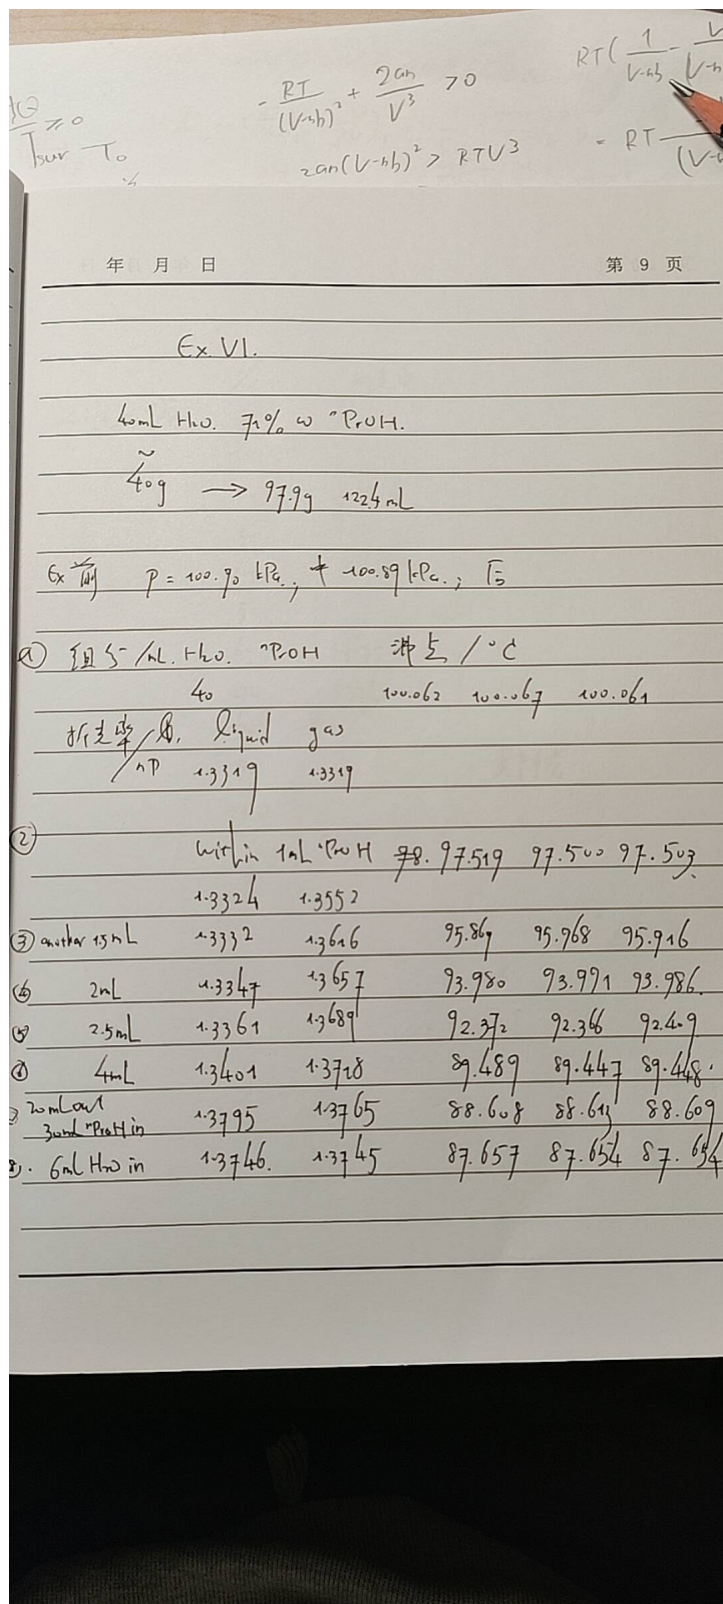 RT ( 1/(V-nb) -
- RT/(V-nb)² + 2an/V³ > 0
≥ 0
Tsur T₀
2an(V-nb)² > RTV³
= RT
年 月 日 第 9 页
Ex. VI.
40mL H₂O. 71% ω ⁿPrOH.
~
40g → 97.9g 122.4mL
Ex 前 p = 100.90 kPa., 100.89 kPa.; 后
① 组分/mL. H₂O. ⁿPrOH 沸点/°C
40 100.062 100.067 100.061
折光率 liquid gas
/nD 1.3319 1.3319
② within 1mL ⁿPrOH 97.519 97.500 97.503
1.3324 1.3552
③ another 1.5mL 1.3332 1.3616 95.869 95.968 95.916
④ 2mL 1.3347 1.3657 93.980 93.991 93.986
⑤ 2.5mL 1.3361 1.3689 92.372 92.366 92.409
4mL 1.3401 1.3718 89.489 89.447 89.448
20mL out
30mL ⁿPrOH in 1.3795 1.3765 88.608 88.613 88.609
6mL H₂O in 1.3746. 1.3745 87.657 87.654 87.654